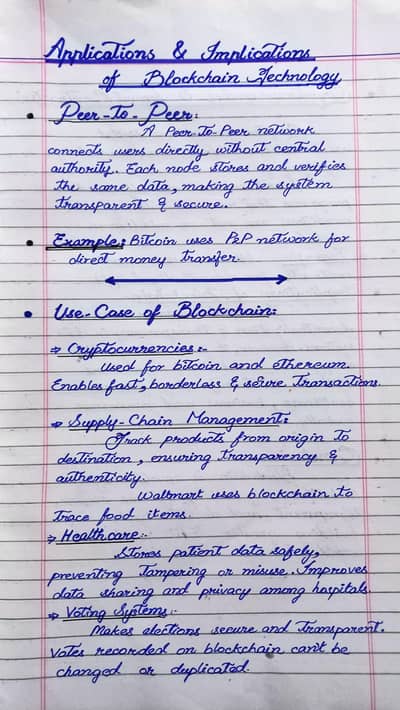 Applications & Implications
of Blockchain Technology
• Peer-To-Peer:
A Peer-To-Peer network
connects users directly without central
authority. Each node stores and verifies
the same data, making the system
transparent & secure.
• Example: Bitcoin uses P2P network for
direct money transfer.
• Use-Case of Blockchain:
⇒ Cryptocurrencies:-
Used for bitcoin and ethereum.
Enables fast, borderless & secure Transactions.
⇒ Supply-Chain Management:
Track products from origin to
destination, ensuring transparency &
authenticity.
Wallmart uses blockchain to
trace food items.
⇒ Healthcare:-
Stores patient data safely,
preventing Tampering or misuse. Improves
data sharing and privacy among hospitals.
⇒ Voting Systems:-
Makes elections secure and Transparent.
Votes recorded on blockchain can't be
changed or duplicated.